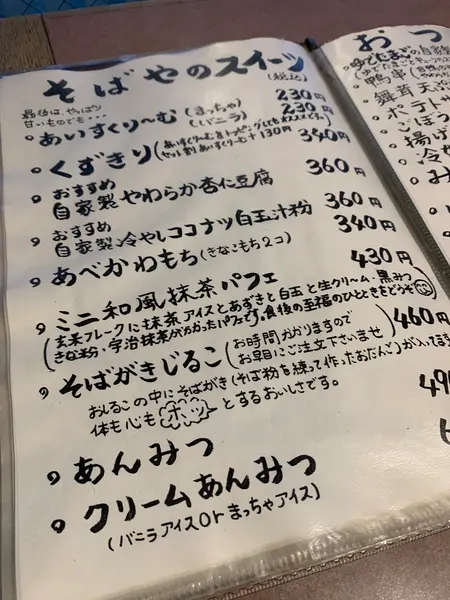 そばやのスイーツ
(税込)
最後は、やっぱり
甘いものでも・・・
あいすくり〜む (まっちゃ) 230円
(バニラ) 230円
くずきり (あいすくり〜むをトッピングしてもオススメです。 340円
セット割あいすくり〜む+130円)
おすすめ
自家製やわらか杏仁豆腐 360円
おすすめ
自家製冷やしココナツ白玉汁粉 360円
あべかわもち(きなこもち2コ) 340円
ミニ和風抹茶パフェ 430円
(玄米フレークに抹茶アイスとあずきと白玉と生クリーム・黒みつ
きな粉、宇治抹茶がかかったパフェです。食後の至福のひとときをどうぞ)
そばがきじるこ (お時間かかりますので 460円
お早目にご注文下さいませ)
おしるこの中にそばがき(そば粉を練って作ったおだんご)が入ってます
体も心もホッとするおいしさです。
あんみつ 49
クリームあんみつ
(バニラアイスOrまっちゃアイス)
おつ
ゆでたまごの自家製
鴨串
舞茸天ぷ
ポテト
ごぼう
揚げ
冷や